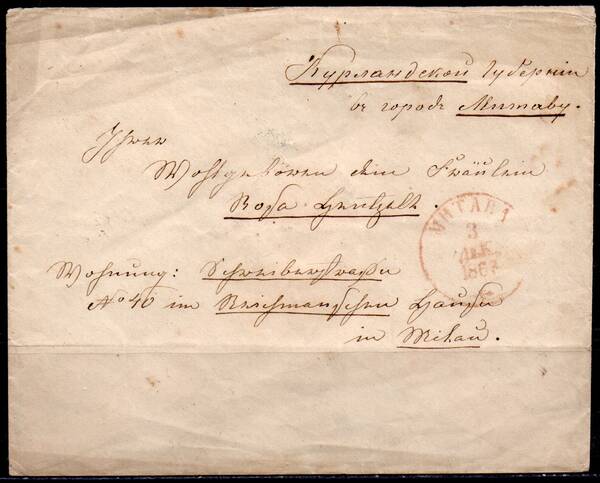 Курляндской Губерніи
въ городъ Митаву.
Ihrer
Wohlgeboren dem Fräulein
Rosa
МИТАВА
3
ДЕК.
1867
Wohnung: Schreiberstraße
No 40 im Reichmannschen Hause
in Mitau.